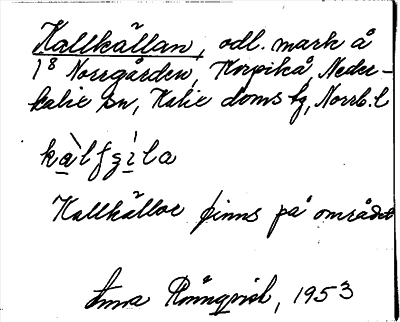 Kallkällan, odl. mark å
1⁸ Norrgården, Korpikå, Neder-
kalix sn, Kalix doms hg, Norrb. l
kàlfʒìla
Kallkällor finns på området
Anna Rönnqvist, 1953